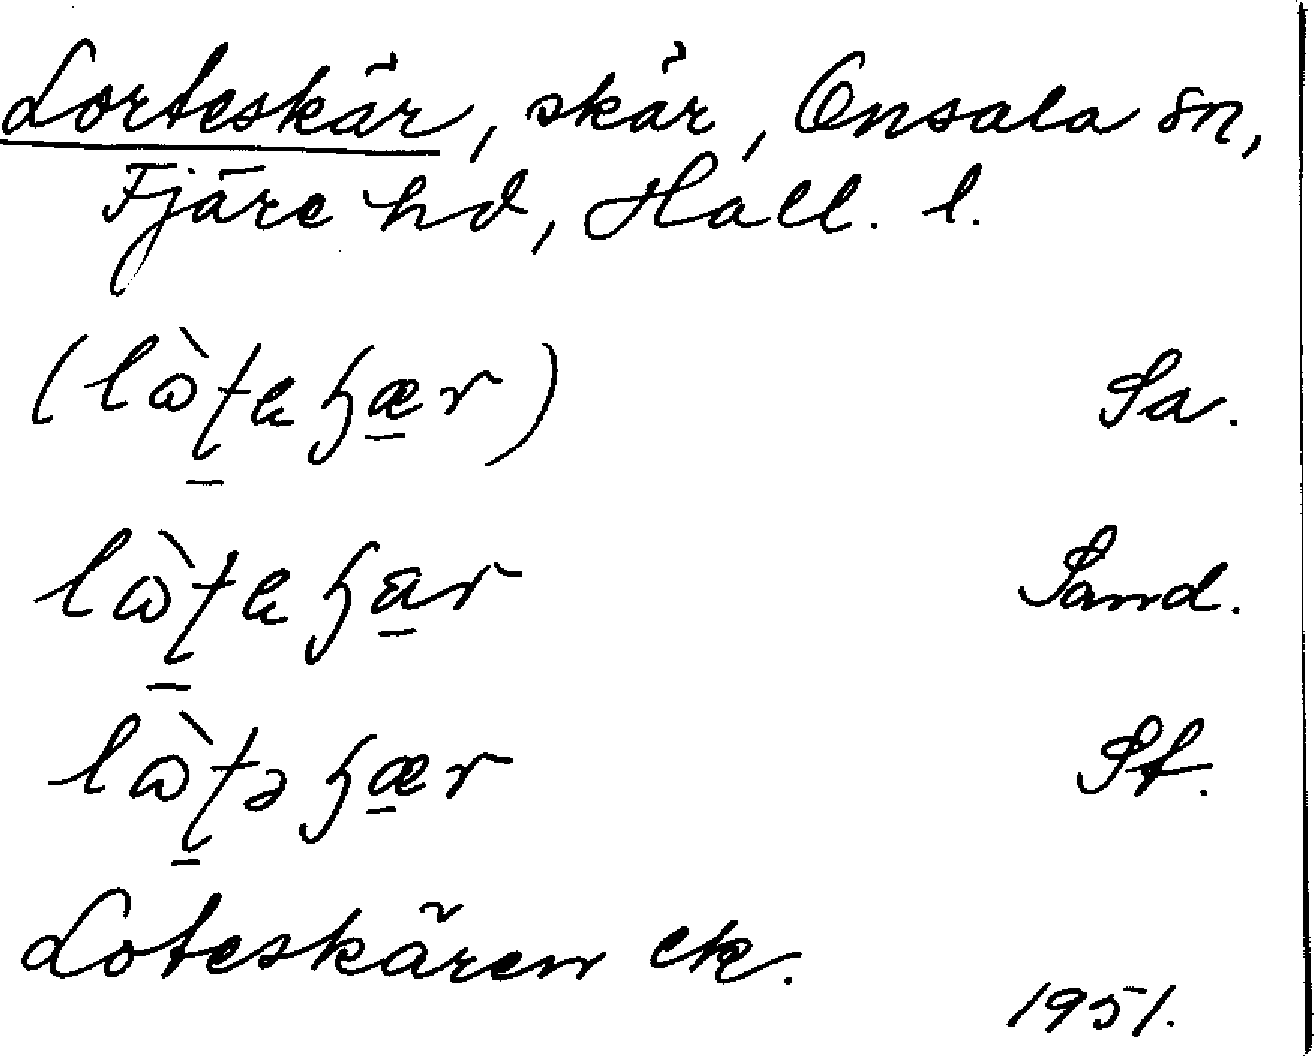 Lorteskär, skär, Onsala sn,
Fjäre hd, Hall. l.
(lὼʈaɧær) Sa.
lὼʈaɧar Sand.
lὼʈəɧær St.
Loteskären ek.
1951.